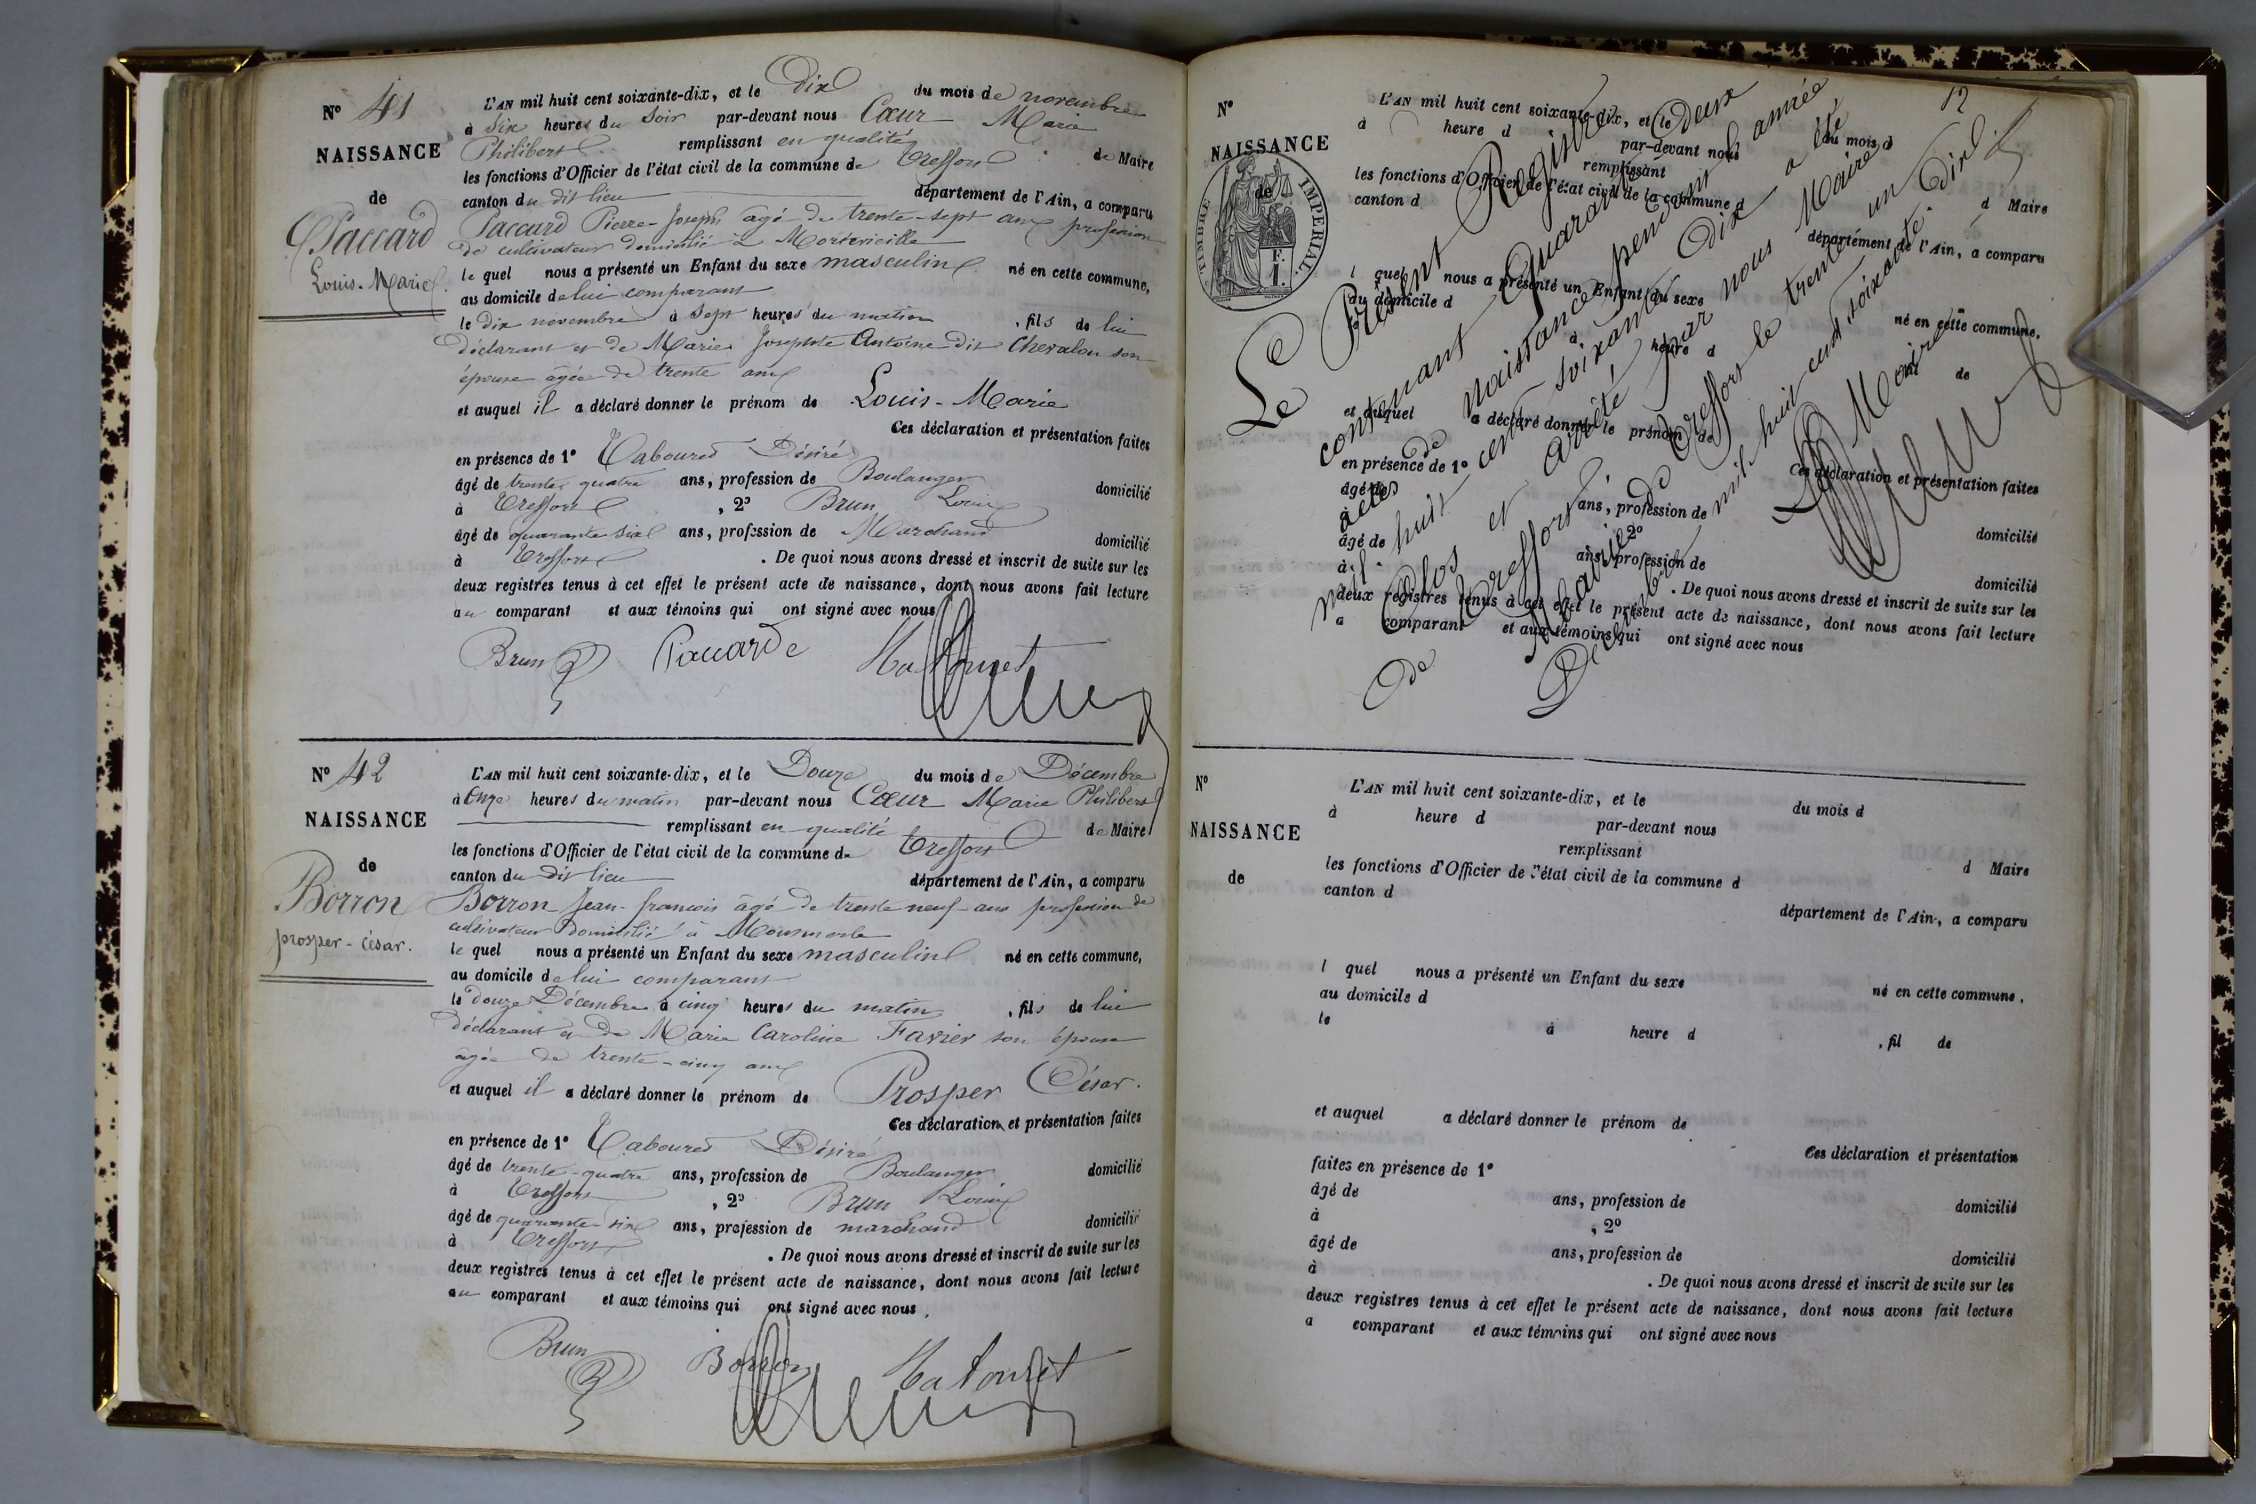 N° 41
NAISSANCE
de
Paccard
Louis-Marie.
L'AN mil huit cent soixante-dix, et le Dix du mois de novembre
à Six heures du Soir par-devant nous Cœur Marie
Philibert remplissant en qualité de Maire
les fonctions d'Officier de l'état civil de la commune de Treffort
canton du dit lieu département de l'Ain, a comparu
Paccard Pierre-Joseph âgé de trente-sept ans profession
de cultivateur domicilié à
le quel nous a présenté un Enfant du sexe masculin né en cette commune,
au domicile de lui comparant
le dix novembre à Sept heures du matin, fils de lui
déclarant et de Marie Josephte Antoine dit Chevalon son
épouse âgée de trente ans
et auquel il a déclaré donner le prénom de Louis-Marie
Ces déclaration et présentation faites
en présence de 1° Tabouret Désiré
âgé de trente quatre ans, profession de Boulanger domicilié
à Treffort, 2° Brun Louis
âgé de quarante six ans, profession de Marchand domicilié
à Treffort. De quoi nous avons dressé et inscrit de suite sur les
deux registres tenus à cet effet le présent acte de naissance, dont nous avons fait lecture
au comparant et aux témoins qui ont signé avec nous
Brun Paccard
N° 42
NAISSANCE
de
Borron
prosper-césar.
L'AN mil huit cent soixante-dix, et le Douze du mois de Décembre
à Onze heures du matin par-devant nous Cœur Marie Philibert
remplissant en qualité de Maire
les fonctions d'Officier de l'état civil de la commune de Treffort
canton du dit lieu département de l'Ain, a comparu
Borron Jean-françois âgé de trente neuf ans profession de
cultivateur domicilié à
le quel nous a présenté un Enfant du sexe masculin né en cette commune,
au domicile de lui comparant
le douze Décembre à cinq heures du matin, fils de lui
déclarant et de Marie Caroline Favier son épouse
âgée de trente-cinq ans
et auquel il a déclaré donner le prénom de Prosper César.
Ces déclaration et présentation faites
en présence de 1° Tabouret Désiré
âgé de trente-quatre ans, profession de Boulanger domicilié
à Treffort, 2° Brun Louis
âgé de quarante-six ans, profession de marchand domicilié
à Treffort. De quoi nous avons dressé et inscrit de suite sur les
deux registres tenus à cet effet le présent acte de naissance, dont nous avons fait lecture
au comparant et aux témoins qui ont signé avec nous.
Brun Borron
12
N°
NAISSANCE
de
TIMBRE IMPERIAL.
1 F.
L'AN mil huit cent soixante-dix, et le du mois d
à heure d par-devant nous
remplissant d Maire
les fonctions d'Officier de l'état civil de la commune d
canton d département de l'Ain, a comparu
l quel nous a présenté un Enfant du sexe né en cette commune,
au domicile d
à heure d de
et auquel a déclaré donner le prénom de
Ces déclaration et présentation faites
en présence de 1°
âgé de ans, profession de domicilié
à 2°
âgé de ans, profession de domicilié
à . De quoi nous avons dressé et inscrit de suite sur les
deux registres tenus à cet effet le présent acte de naissance, dont nous avons fait lecture
a comparant et aux témoins qui ont signé avec nous
Le Présent Registre
contenant Quarante Deux
actes de naissance pendant l'année
mil huit cent soixante Dix a été
Clos et arrêté par nous Maire
de Treffort. De Treffort le trente un
Décembre mil huit cent soixante Dix
Maire
N°
NAISSANCE
de
L'AN mil huit cent soixante-dix, et le du mois d
à heure d par-devant nous
remplissant d Maire
les fonctions d'Officier de l'état civil de la commune d
canton d département de l'Ain, a comparu
l quel nous a présenté un Enfant du sexe né en cette commune,
au domicile d
le à heure d, fil de
et auquel a déclaré donner le prénom de
Ces déclaration et présentation
faites en présence de 1°
âgé de ans, profession de domicilié
à , 2°
âgé de ans, profession de domicilié
à . De quoi nous avons dressé et inscrit de suite sur les
deux registres tenus à cet effet le présent acte de naissance, dont nous avons fait lecture
a comparant et aux témoins qui ont signé avec nous